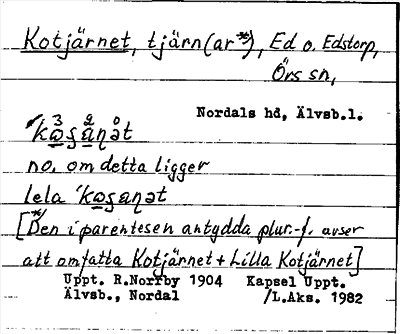 Kotjärnet, tjärn(ar*), Ed o. Edstorp,
Örs sn,
Nordals hd, Älvsb.l.
no. om detta ligger
lela
[*Den i parentesen antydda plur.-f. avser
att omfatta Kotjärnet + Lilla Kotjärnet]
Uppt. R.Norrby 1904 Kapsel Uppt.
Älvsb., Nordal /L.Aks. 1982